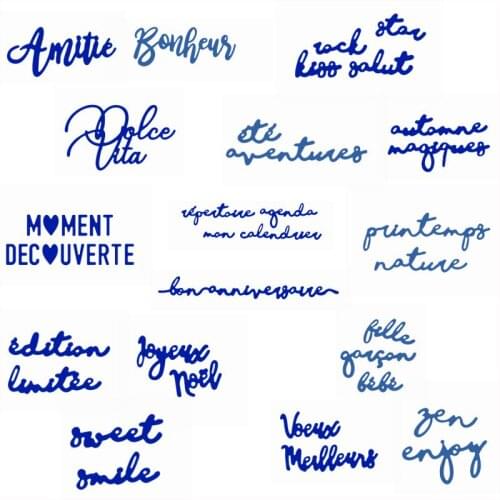 Amitié
Bonheur
rock star
kiss salut
Dolce
Vita
été
aventures
automne
magiques
MOMENT
DECOUVERTE
répertoire agenda
mon calendrier
printemps
nature
bon anniversaire
édition
limitée
Joyeux
Noël
fille
garçon
bébé
sweet
smile
Voeux
Meilleurs
zen
enjoy